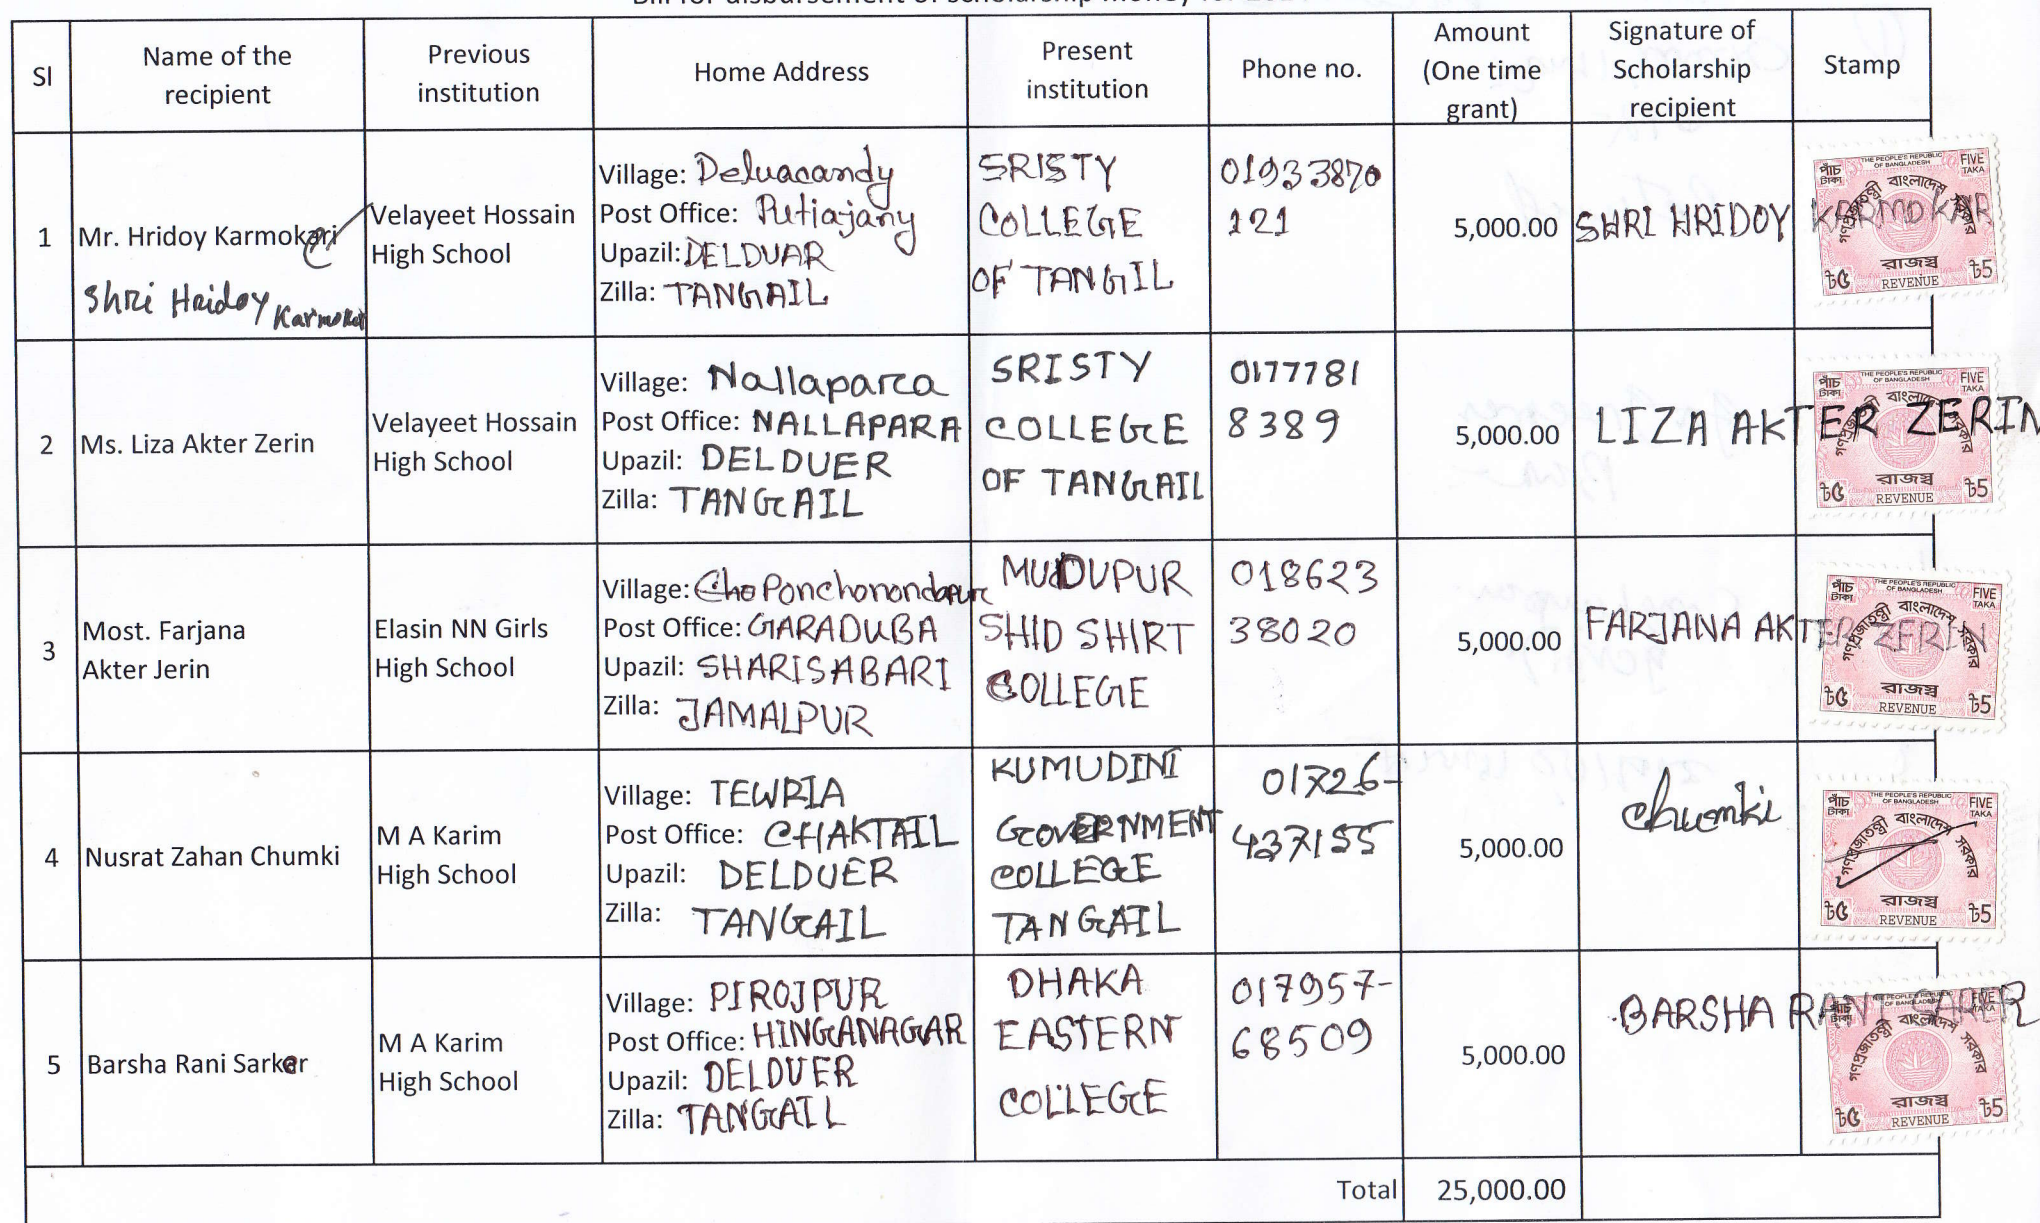 Bill for disbursement of scholarship money for
Sl
Name of the
recipient
Previous
institution
Home Address
Present
institution
Phone no.
Amount
(One time
grant)
Signature of
Scholarship
recipient
Stamp
1
Mr. Hridoy Karmokari
Shri Hridoy Karmokar
Velayeet Hossain
High School
Village: Deluacandy
Post Office: Putiajany
Upazil: DELDUAR
Zilla: TANGAIL
SRISTY
COLLEGE
OF TANGIL
01933870
121
5,000.00
SHRI HRIDOY KARMOKAR
THE PEOPLE'S REPUBLIC
OF BANGLADESH
পাঁচ
টাকা
FIVE
TAKA
গণপ্রজাতন্ত্রী বাংলাদেশ সরকার
৳৫
রাজস্ব
REVENUE
৳5
2
Ms. Liza Akter Zerin
Velayeet Hossain
High School
Village: Nallapara
Post Office: NALLAPARA
Upazil: DELDUER
Zilla: TANGAIL
SRISTY
COLLEGE
OF TANGAIL
0177781
8389
5,000.00
LIZA AKTER ZERIN
THE PEOPLE'S REPUBLIC
OF BANGLADESH
পাঁচ
টাকা
FIVE
TAKA
গণপ্রজাতন্ত্রী বাংলাদেশ সরকার
৳৫
রাজস্ব
REVENUE
৳5
3
Most. Farjana
Akter Jerin
Elasin NN Girls
High School
Village: Cho Ponchonondapur
Post Office: GARADUBA
Upazil: SHARISABARI
Zilla: JAMALPUR
MUDUPUR
SHID SHIRT
COLLEGE
018623
38020
5,000.00
FARJANA AKTER ZERIN
THE PEOPLE'S REPUBLIC
OF BANGLADESH
পাঁচ
টাকা
FIVE
TAKA
গণপ্রজাতন্ত্রী বাংলাদেশ সরকার
৳৫
রাজস্ব
REVENUE
৳5
4
Nusrat Zahan Chumki
M A Karim
High School
Village: TEWRIA
Post Office: CHAKTAIL
Upazil: DELDUER
Zilla: TANGAIL
KUMUDINI
GOVERNMENT
COLLEGE
TANGAIL
01726-
437155
5,000.00
Chumki
THE PEOPLE'S REPUBLIC
OF BANGLADESH
পাঁচ
টাকা
FIVE
TAKA
গণপ্রজাতন্ত্রী বাংলাদেশ সরকার
৳৫
রাজস্ব
REVENUE
৳5
5
Barsha Rani Sarker
M A Karim
High School
Village: PIROJPUR
Post Office: HINGANAGAR
Upazil: DELDUER
Zilla: TANGAIL
DHAKA
EASTERN
COLLEGE
017957-
68509
5,000.00
BARSHA RANI SARKER
THE PEOPLE'S REPUBLIC
OF BANGLADESH
পাঁচ
টাকা
FIVE
TAKA
গণপ্রজাতন্ত্রী বাংলাদেশ সরকার
৳৫
রাজস্ব
REVENUE
৳5
Total
25,000.00